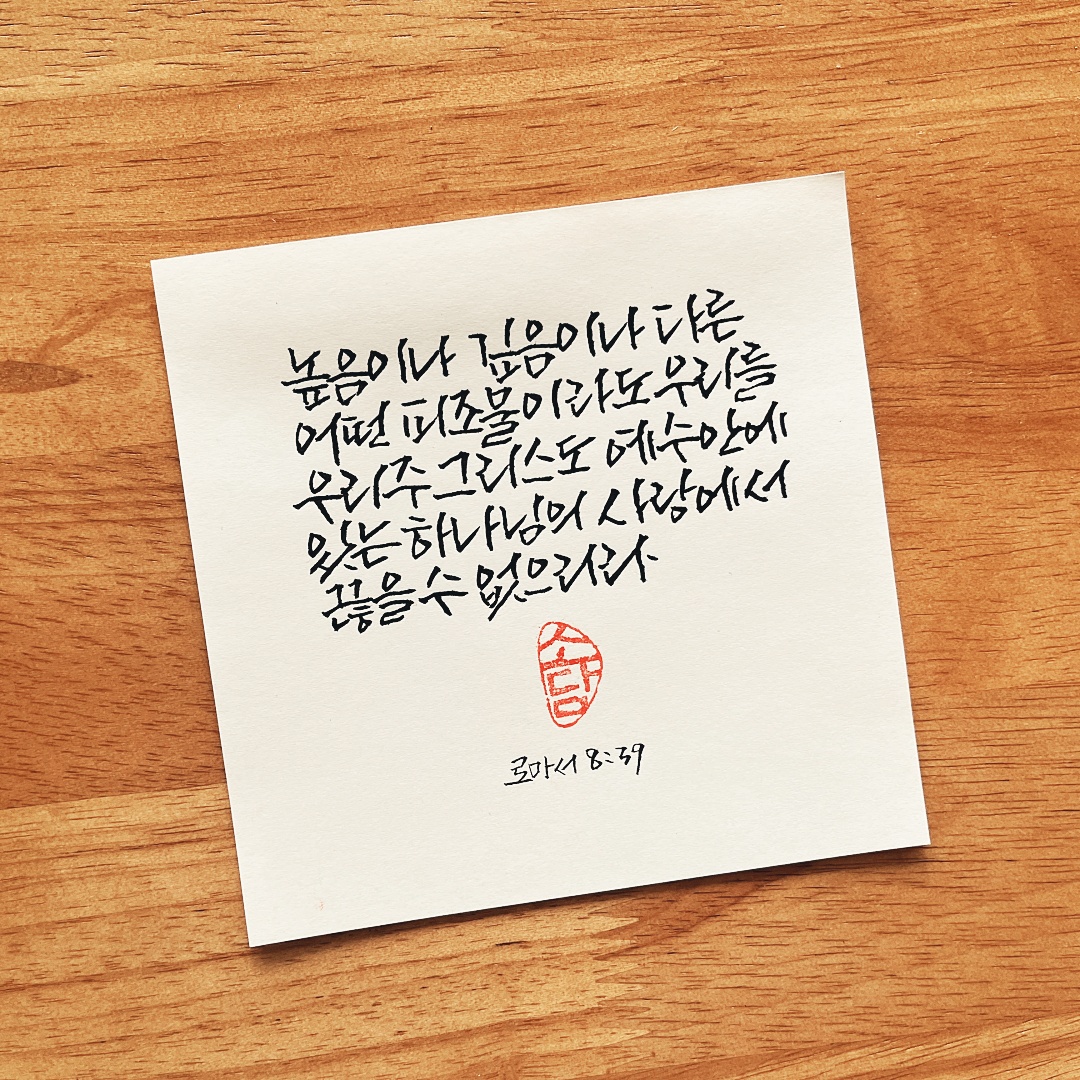 높음이나 깊음이나 다른
어떤 피조물이라도 우리를
우리 주 그리스도 예수 안에
있는 하나님의 사랑에서
끊을 수 없으리라
소담
로마서 8:39